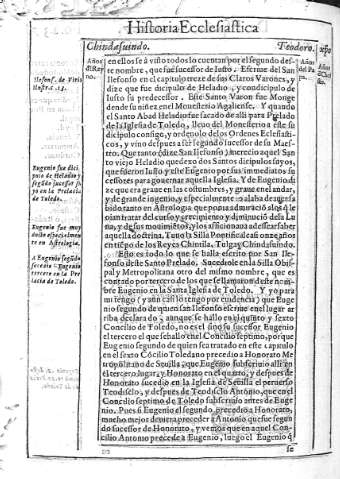 Historia Ecclesiastica
Chindasuindo. Teodoro. xpo
Años del Rey no.
Ilefonf. de Viris Illustr. c. 13.
Eugenio fue dicipulo de Heladio y segūdo sucesor suyo en la Prelacia de Toledo.
Eugenio fue muy docto especialmente en Astrologia.
A Eugenio segūdo sucedio Eugenio tercero en la Prelacia de Toledo.
Años del Papa.
Años de Christo.
en ellos se á visto todos lo cuentan por el segundo deste
nombre, que fue sucesor de Iusto. Escriue del San
Ilefonso en el capitulo treze de sus Claros Varones, y
dize que fue dicipulo de Heladio, y condicipulo de
Iusto su predecessor. Este Santo Varon fue Monge
dende su niñez en el Monesterio Agaliense. Y quando
el Santo Abad Heladio fue sacado de alli para Prelado
de la Iglesia de Toledo, lleuo del Monesterio a este su
dicipulo consigo, y ordenolo de los Ordenes Eclesiasticos,
y vino despues a ser segundo sucessor de su Maestro.
Que tanto (dize San Ilefonso) merecio aquel Santo
viejo Heladio que dexo dos Santos dicipulos suyos,
que fueron Iusto y este Eugenio por sus inmediatos sucessores
para gouernar aquella Iglesia. Y de Eugenio dize
que era graue en las costumbres, y graue en el andar,
y de grande ingenio, y especialmente
bido tanto en Astrologia que ponia admiracio a los q̄ lo
oian tratar del curso y crecimiento y diminució de la Luna,
y de sus mouimiētos, y los aficionaua a desear saber
aquella doctrina. Tuuo la Silla Pontifical casi onze años
en tiēpo de los Reyes Chintila, Tulga y Chindasuindo.
Esto es todo lo que se halla escrito por San Ilefonso
deste Santo Prelado. Sucediole en la Silla Obispal
y Metropolitana otro del mismo nombre, que es
contado por tercero de los que se llamaron deste nombre
Eugenio en la Santa Iglesia de Toledo. Y yo para
mi tengo (y aun casi lo tengo por euidencia) que Eugenio
segundo de quien san Ilefonso escriue en el lugar arriba
declarado, aunque se hallo en el quinto y sexto
Concilio de Toledo, no es el sino su sucessor Eugenio
el tercero el que se hallo en el Concilio septimo, porque
Eugenio segundo de quien se a tratado en este capitulo
en el sexto Cócilio Toledano precedio a Honorato Metropolitano
de Seuilla, que Eugenio subscriuio alli en
el tercero lugar, y Honorato en el quarto, y despues de
Honorato sucedio en la Iglesia de Seuilla el peruerso
Teodisclo, y despues de Teodisclo Antonio, que en el
Concilio septimo de Toledo subscriuio antes de Eugenio.
Pues si Eugenio el segundo precedio a Honorato,
mucho mejor deuiera preceder a Antonio que fue segundo
sucessor de Honorato, y vemos que en aquel Concilio
Antonio precede a Eugenio, luego el Eugenio q̄
se